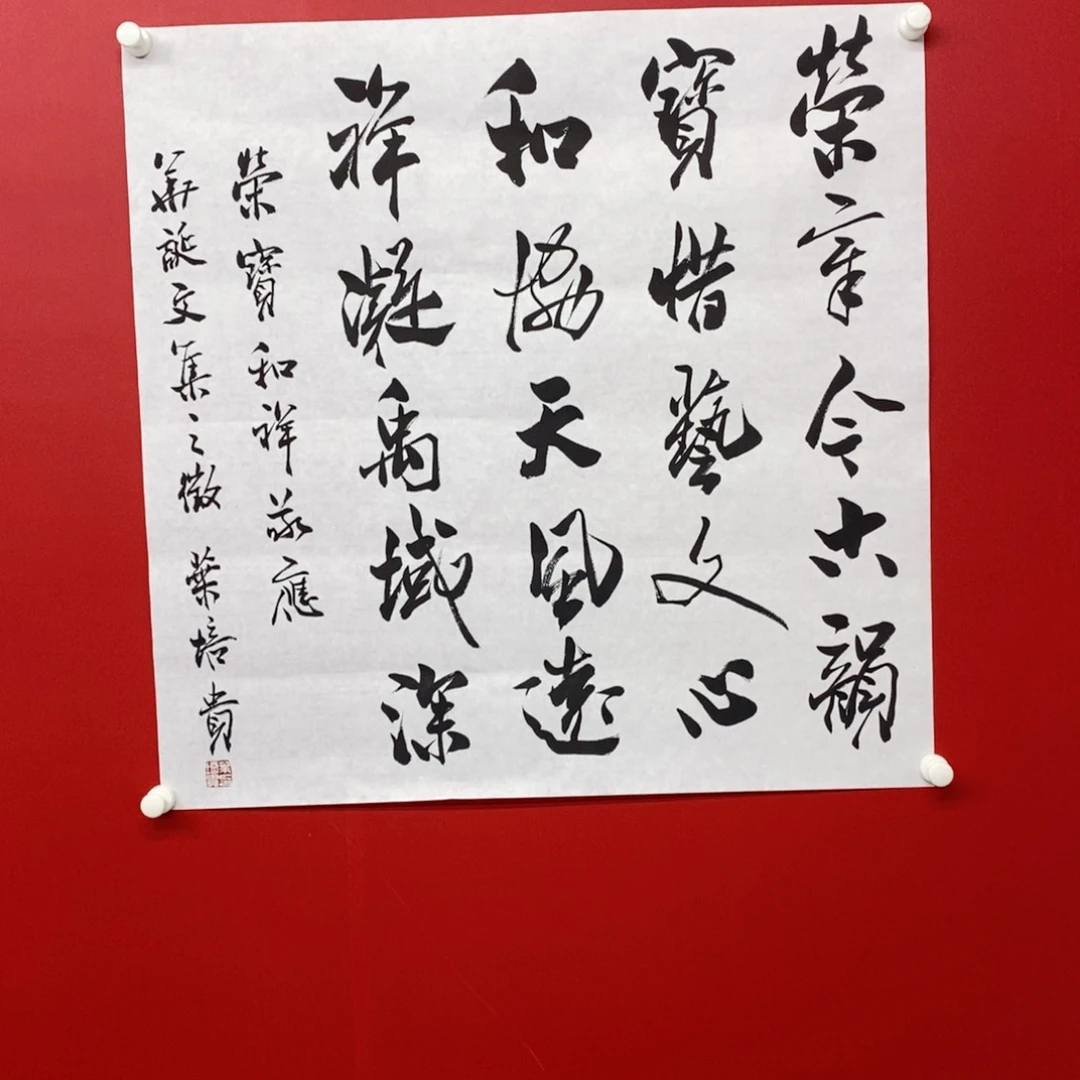 榮宣今古韻
寶惜藝文心
和協天風遠
祥凝禹域深
榮寶和祥敬應
華誕文集之徵 葉培貴